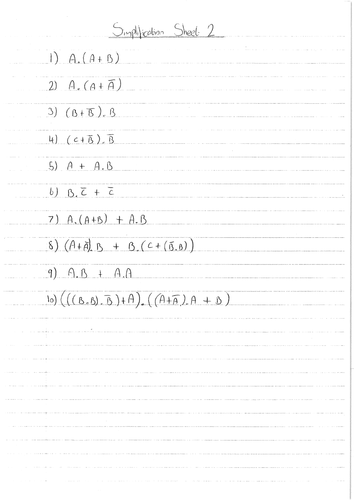 Simplification Sheet 2
1) A.(A+B)
2) A.(A+A̅)
3) (B+B̅).B
4) (C+B̅).B̅
5) A + A.B
6) B.C̅ + C̅
7) A.(A+B) + A.B
8) (A+A̅).B + B.(C+(B̅.B))
9) A.B + A.A
10) (((B.B).B̅)+A).((A+A̅).A + B)